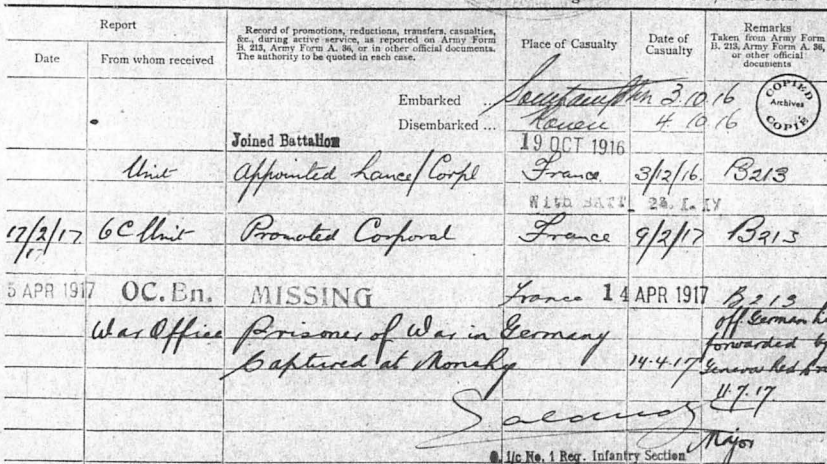 Report
Record of promotions, reductions, transfers, casualties,
&c., during active service, as reported on Army Form
B. 213, Army Form A. 36, or in other official documents.
The authority to be quoted in each case.
Place of Casualty
Date of
Casualty
Remarks
Taken from Army Form
B. 213, Army Form A. 36,
or other official
documents
Date
From whom received
Embarked ... Southampton 3.10.16
Disembarked ... Rouen 4.10.16
COPIED
Archives
COPIÉ
Joined Battalion 19 OCT 1916
Unit Appointed Lance/Corpl France 3/12/16. B213
With BATT.
17/2/17 OC Unit Promoted Corporal France 9/2/17 B213
5 APR 1917 OC. Bn. MISSING France 14 APR 1917 B213
War Office Prisoner of War in Germany
Captured at Monchy 14.4.17
off. German
forwarded by
Geneva Red
11.7.17
Major
i/c No. 1 Reg. Infantry Section